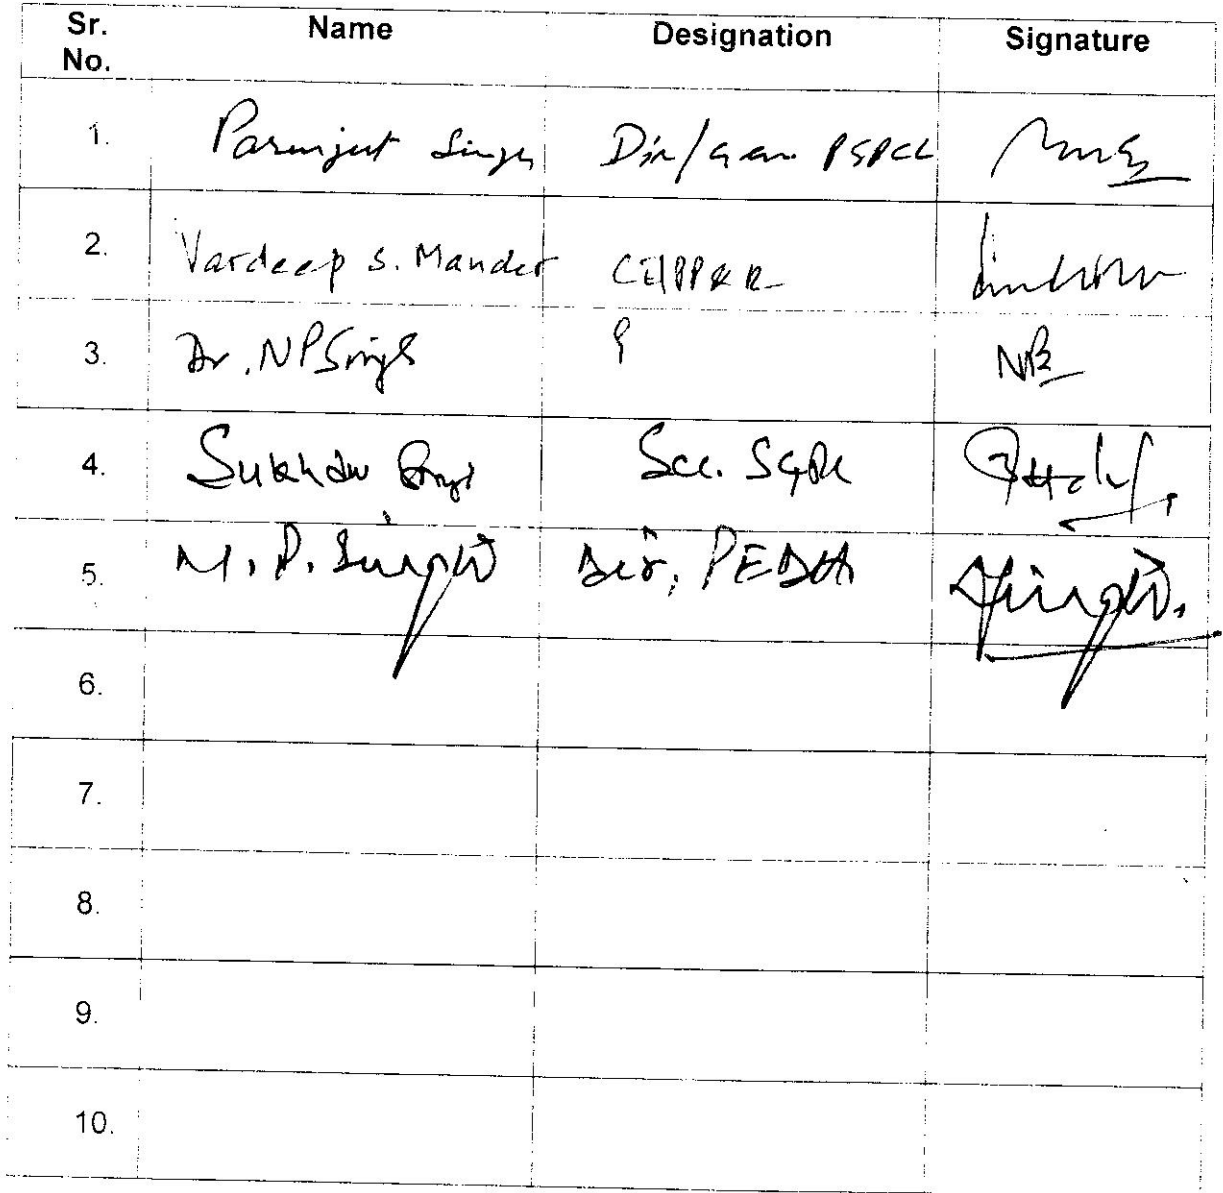 Sr. No. Name Designation Signature
1. Parmjeet Singh Dir/Gen. PSPCL
2. Vardeep S. Mander CE/PP&R
3. Dr. NPSingh
4. Sukhdev Singh
5. M. P. Singh Dir, PEDA
6.
7.
8.
9.
10.